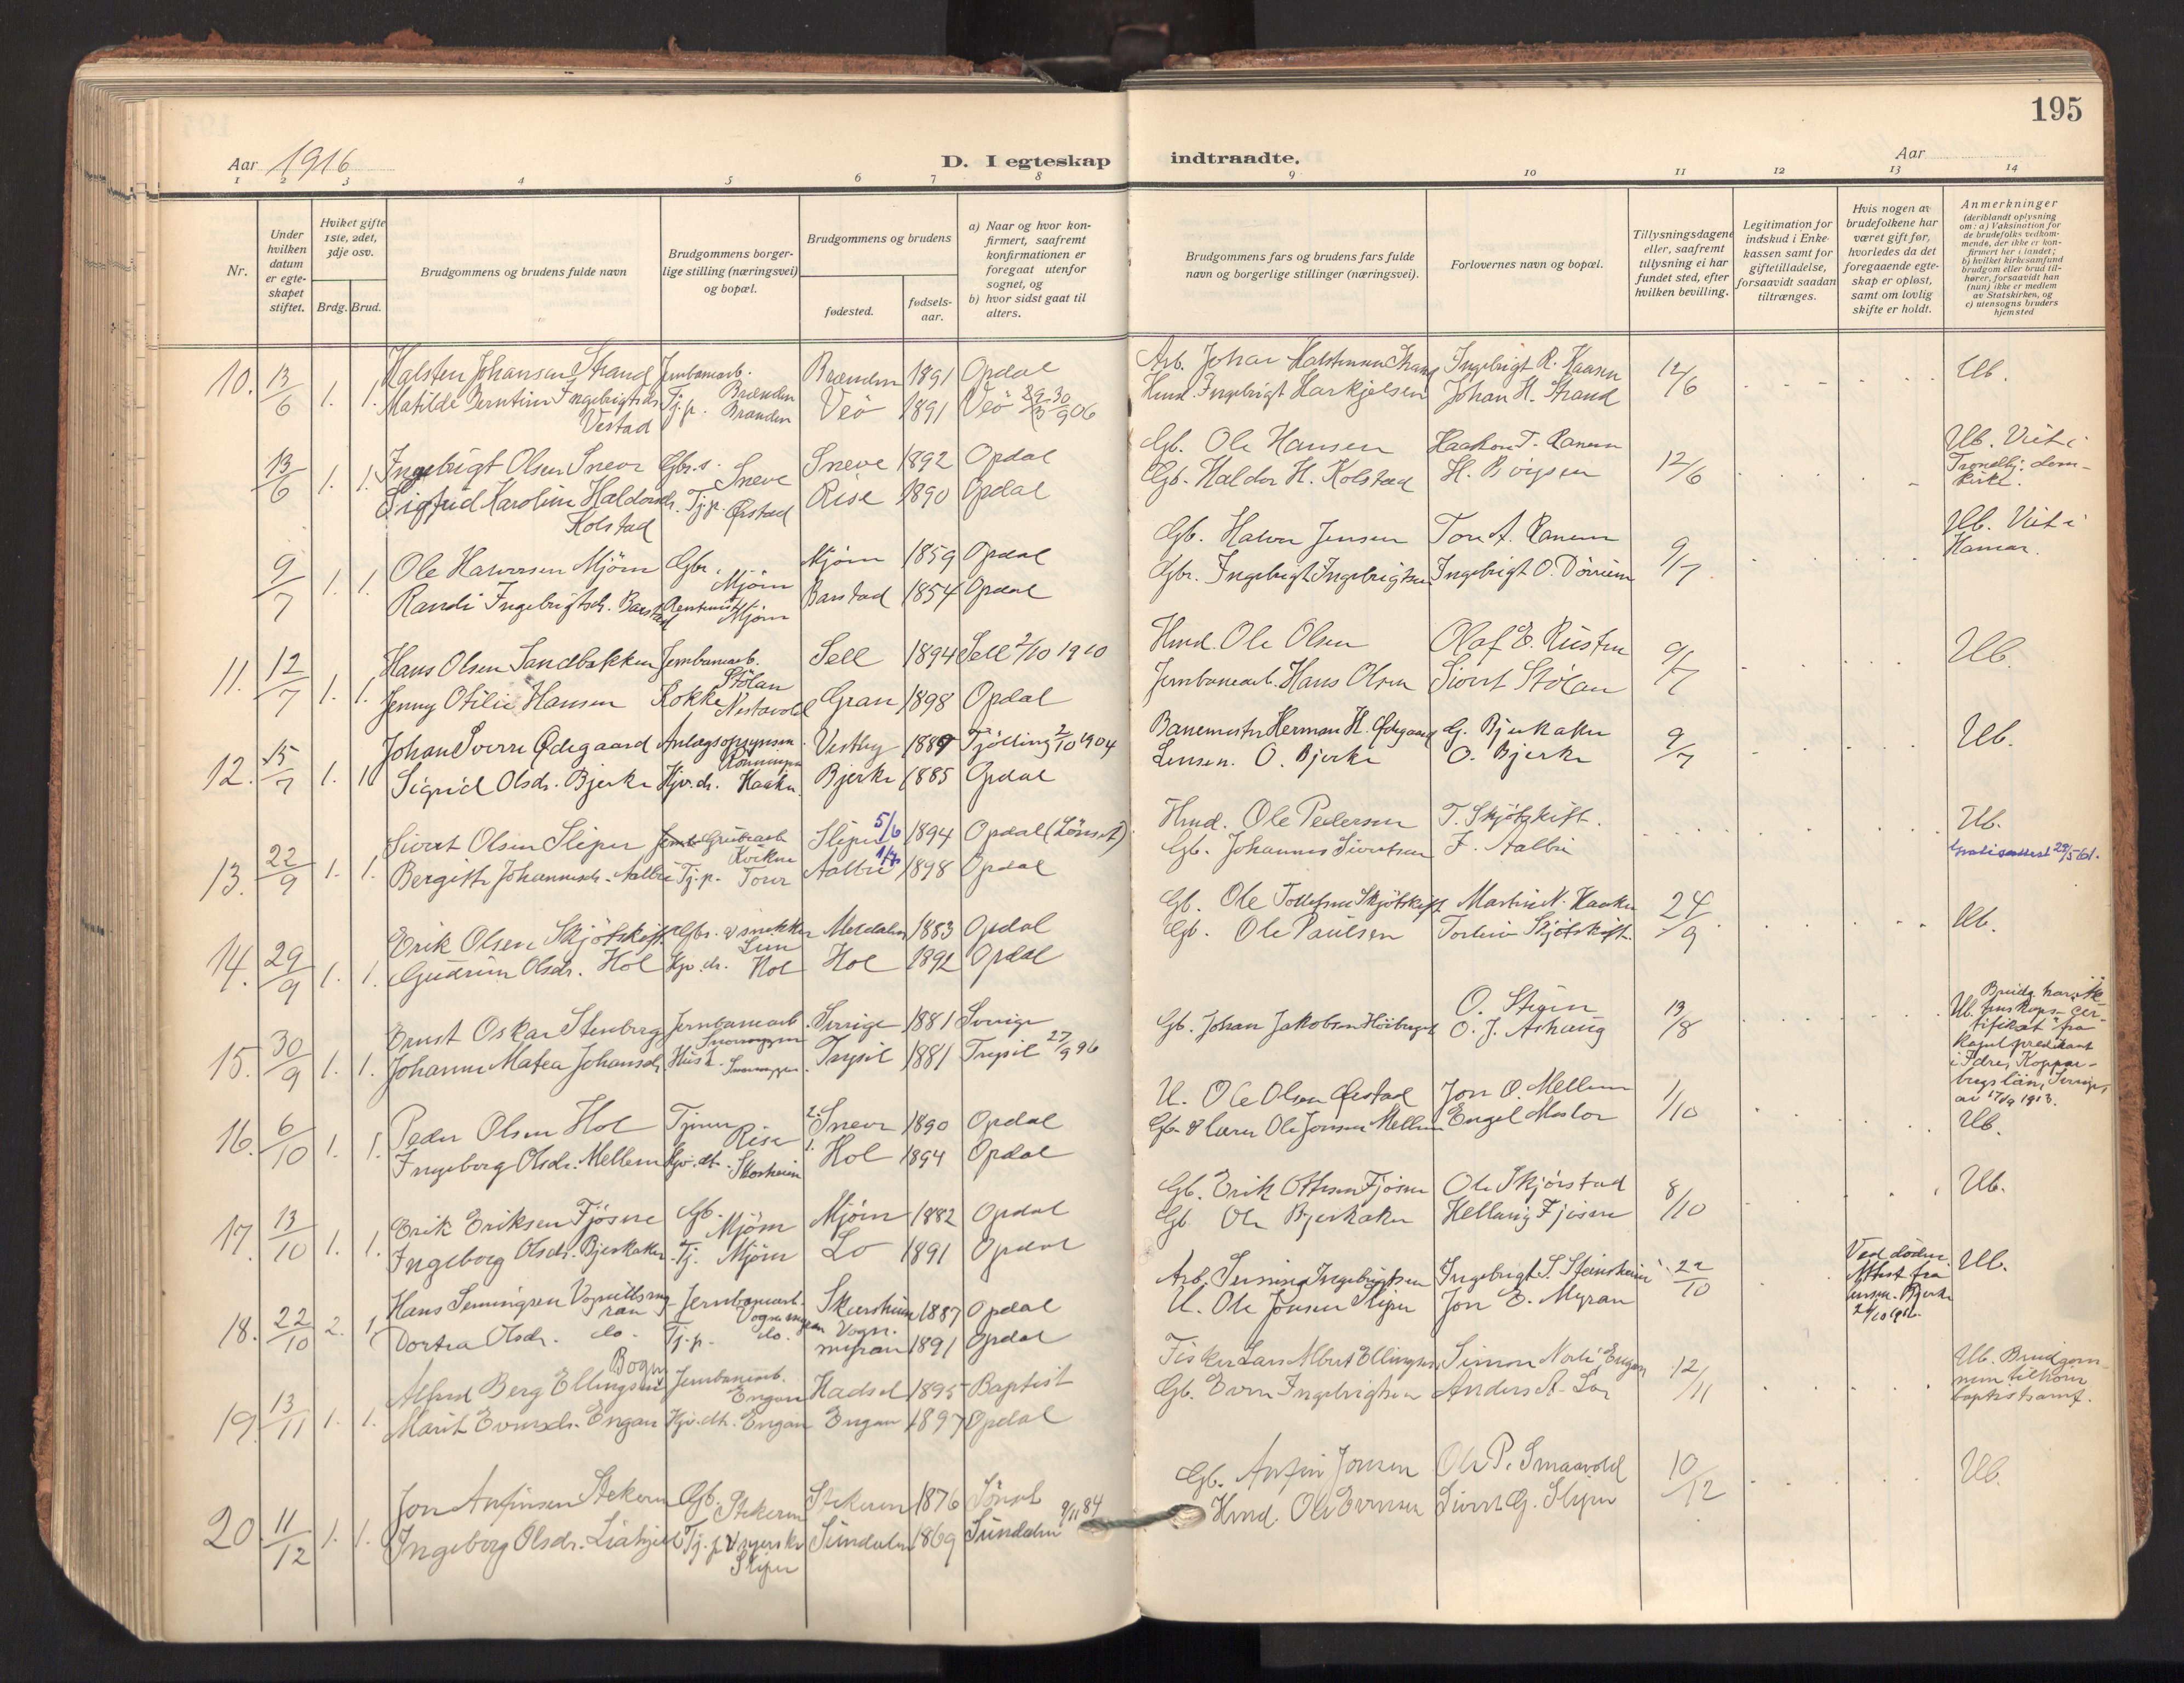 195
Aar 1916
D. I egteskap indtraadte.
Aar
1 2 3 4 5 6 7 8 9 10 11 12 13 14
Nr.
Under hvilken datum er egteskapet stiftet.
Hviket gifte 1ste, 2det, 3dje osv.
Brdg. Brud.
Brudgommens og brudens fulde navn
Brudgommens borgerlige stilling (næringsvei) og bopæl.
Brudgommens og brudens
fødested.
fødselsaar.
a) Naar og hvor konfirmert, saafremt konfirmationen er foregaat utenfor sognet, og
b) hvor sidst gaat til alters.
Brudgommens fars og brudens fars fulde navn og borgerlige stillinger (næringsvei).
Forlovernes navn og bopæl.
Tillysningsdagene eller, saafremt tillysning ei har fundet sted, efter hvilken bevilling.
Legitimation for indskud i Enkekassen samt for giftetilladelse, forsaavidt saadan tiltrænges.
Hvis nogen av brudefolkene har været gift før, hvorledes da det foregaaende egteskap er opløst, samt om lovlig skifte er holdt.
Anmerkninger
(deriblandt oplysning om: a) Vaksination for de brudefolks vedkommende, der ikke er konfirmert her i landet; b) hvilket kirkesamfund brudgom eller brud tilhører, forsaavidt han (hun) ikke er medlem av Statskirken, og c) utensogns bruders hjemsted
10. 13/6 1. 1. Halsten Johansen Strand Jernbanearb. Brænden Brænden 1891 Opdal Arb. Johan Halstensen Strand Ingebrigt R. Kaasen 12/6 Ub.
Matilde Berntine Ingebrigtsdr. Vestad Tj.p. Brænden Veö 1891 Veö 30/9 06 Hmd. Ingebrigt Harkjelsen Johan H. Strand
13/6 1. 1. Ingebrigt Olsen Sneve Gbr.s. Sneve Sneve 1892 Opdal Gb. Ole Hansen Haakon T. Ranem 12/6 Ub. Viet i Trondhj. domkirke.
Sigfrid Karoline Haldorsdr. Kolstad Tj.p. Ørstad Rise 1890 Opdal Gb. Haldor H. Kolstad H. Börgsen
9/7 1. 1. Ole Halvorsen Mjöen Gbr. Mjöen Mjöen 1859 Opdal Gb. Halvor Jensen Tore A. Ranem 9/7 Ub. Viet i Hamar.
Randi Ingebrigtsdr. Barstad Rentenist Mjöen Barstad 1854 Opdal Gbr. Ingebrigt Ingebrigtsen Ingebrigt O. Dörrem
11. 12/7 1. 1. Hans Olsen Sandbakken Jernbanearb. Stölan Sell 1894 Sell 2/10 1910 Hmd. Ole Olsen Olaf E. Risten 9/7 Ub.
Jenny Otilie Hansen Kokke Nestavold Gran 1898 Opdal Jernbanearb. Hans Olsen Sivert Stölan
12. 15/7 1. 1. Johan Sverre Ødegaard Anlægsopsynsm. Vestby 1889 Tjölling 2/10 1904 Banemester Herman H. Ødegaard G. Bjerkaker 9/7 Ub.
Sigrid Olsdr. Bjerke Hjv.dr. Haaker Bjerke 1885 Opdal Lensm. O. Bjerke O. Bjerke
13. 22/9 1. 1. Sivert Olsen Sliper Grubearb Kvikne Sliper 5/6 1894 Opdal (Lönset) Hmd. Ole Pedersen T. Skjötskift. Ub.
Bergitte Johannesdr. Aalbu Tj.p. Aalbu 1898 Opdal Gb. Johannes Sivertsen J. Aalbu 29/5 61.
14. 29/9 1. 1. Erik Olsen Skjötskift Gbr. & snekker Lien Meldalen 1883 Opdal Gb. Ole Tollefsen Skjötskift Martin N. Haaker 24/9 Ub.
Gudrun Olsdr. Hol Hjv.dr. Hol Hol 1892 Opdal Gb. Ole Paulsen Torleiv Skjötskift
15. 30/9 1. 1. Ernst Oskar Stenberg Jernbanearb. Sverige 1881 Sverige O. Stuen 13/8
Johanne Matea Johansdr. Trysil 1881 Trysil 27/9 96 Gb. Johan Jakobsen Höiberget O. J. Ashaug
Ub. Brudg. har certifikat fra i Idre, Kopparbergs län, Sverige, av 17/9 1913.
16. 6/10 1. 1. Peder Olsen Hol Tjener Rise 2. Sneve 1890 Opdal U. Ole Olsen Ørstad Jon O. Mellem 1/10 Ub.
Ingeborg Olsdr. Mellem Hjv.dt. Skorheim 1. Hol 1894 Opdal Gb & lærer Ole Jonsen Mellem Engel Meslor
17. 13/10 1. 1. Erik Eriksen Fjösne Gb. Mjöen Mjöen 1882 Opdal Gb. Erik Ottesen Fjösne Ole Skjörstad 8/10 Ub.
Ingeborg Olsdr. Bjerkaker Tj. Mjöen Lo 1891 Opdal Gb. Ole Bjerkaker Hellaug Fjösne
18. 22/10 2. 1. Hans Semingsen Vognillsmyran Jernbanearb. Vognsmyran Skarsheim 1887 Opdal Arb. Seming Ingebrigtsen Ingebrigt S. Steinsheim 22/10 Ved döden. Attest fra lensm. Bjerke Ub.
Dortea Olsdr. do. Tj.p. do. Vogn.myran 1891 Opdal U. Ole Jonsen Sliper Jon E. Myran
19. 13/11 1. 1. Alfred Berg Ellingsen Bogen Jernbanearb. Engan Hadsel 1895 Baptist Fisker Lars Albert Ellingsen Simon Norli Engan 12/11 Ub. Brudgommen tilhörer baptistsamf.
Marit Evensdr. Engan Hjv.dt. Engan Engan 1897 Opdal Gb. Even Ingebrigtsen Anders A. Lo
20. 11/12 1. 1. Jon Anfinsen Stekern Gb. Stekern Stekern 1876 Lönset Gb. Anfin Jonsen Ole P. Smaavold 10/12 Ub.
Ingeborg Olsdr. Liahjell Tj.p. Sliper Sundalen 1869 Sundalen 9/11 84 Hmd. Ole Evensen Sivert G. Sliper